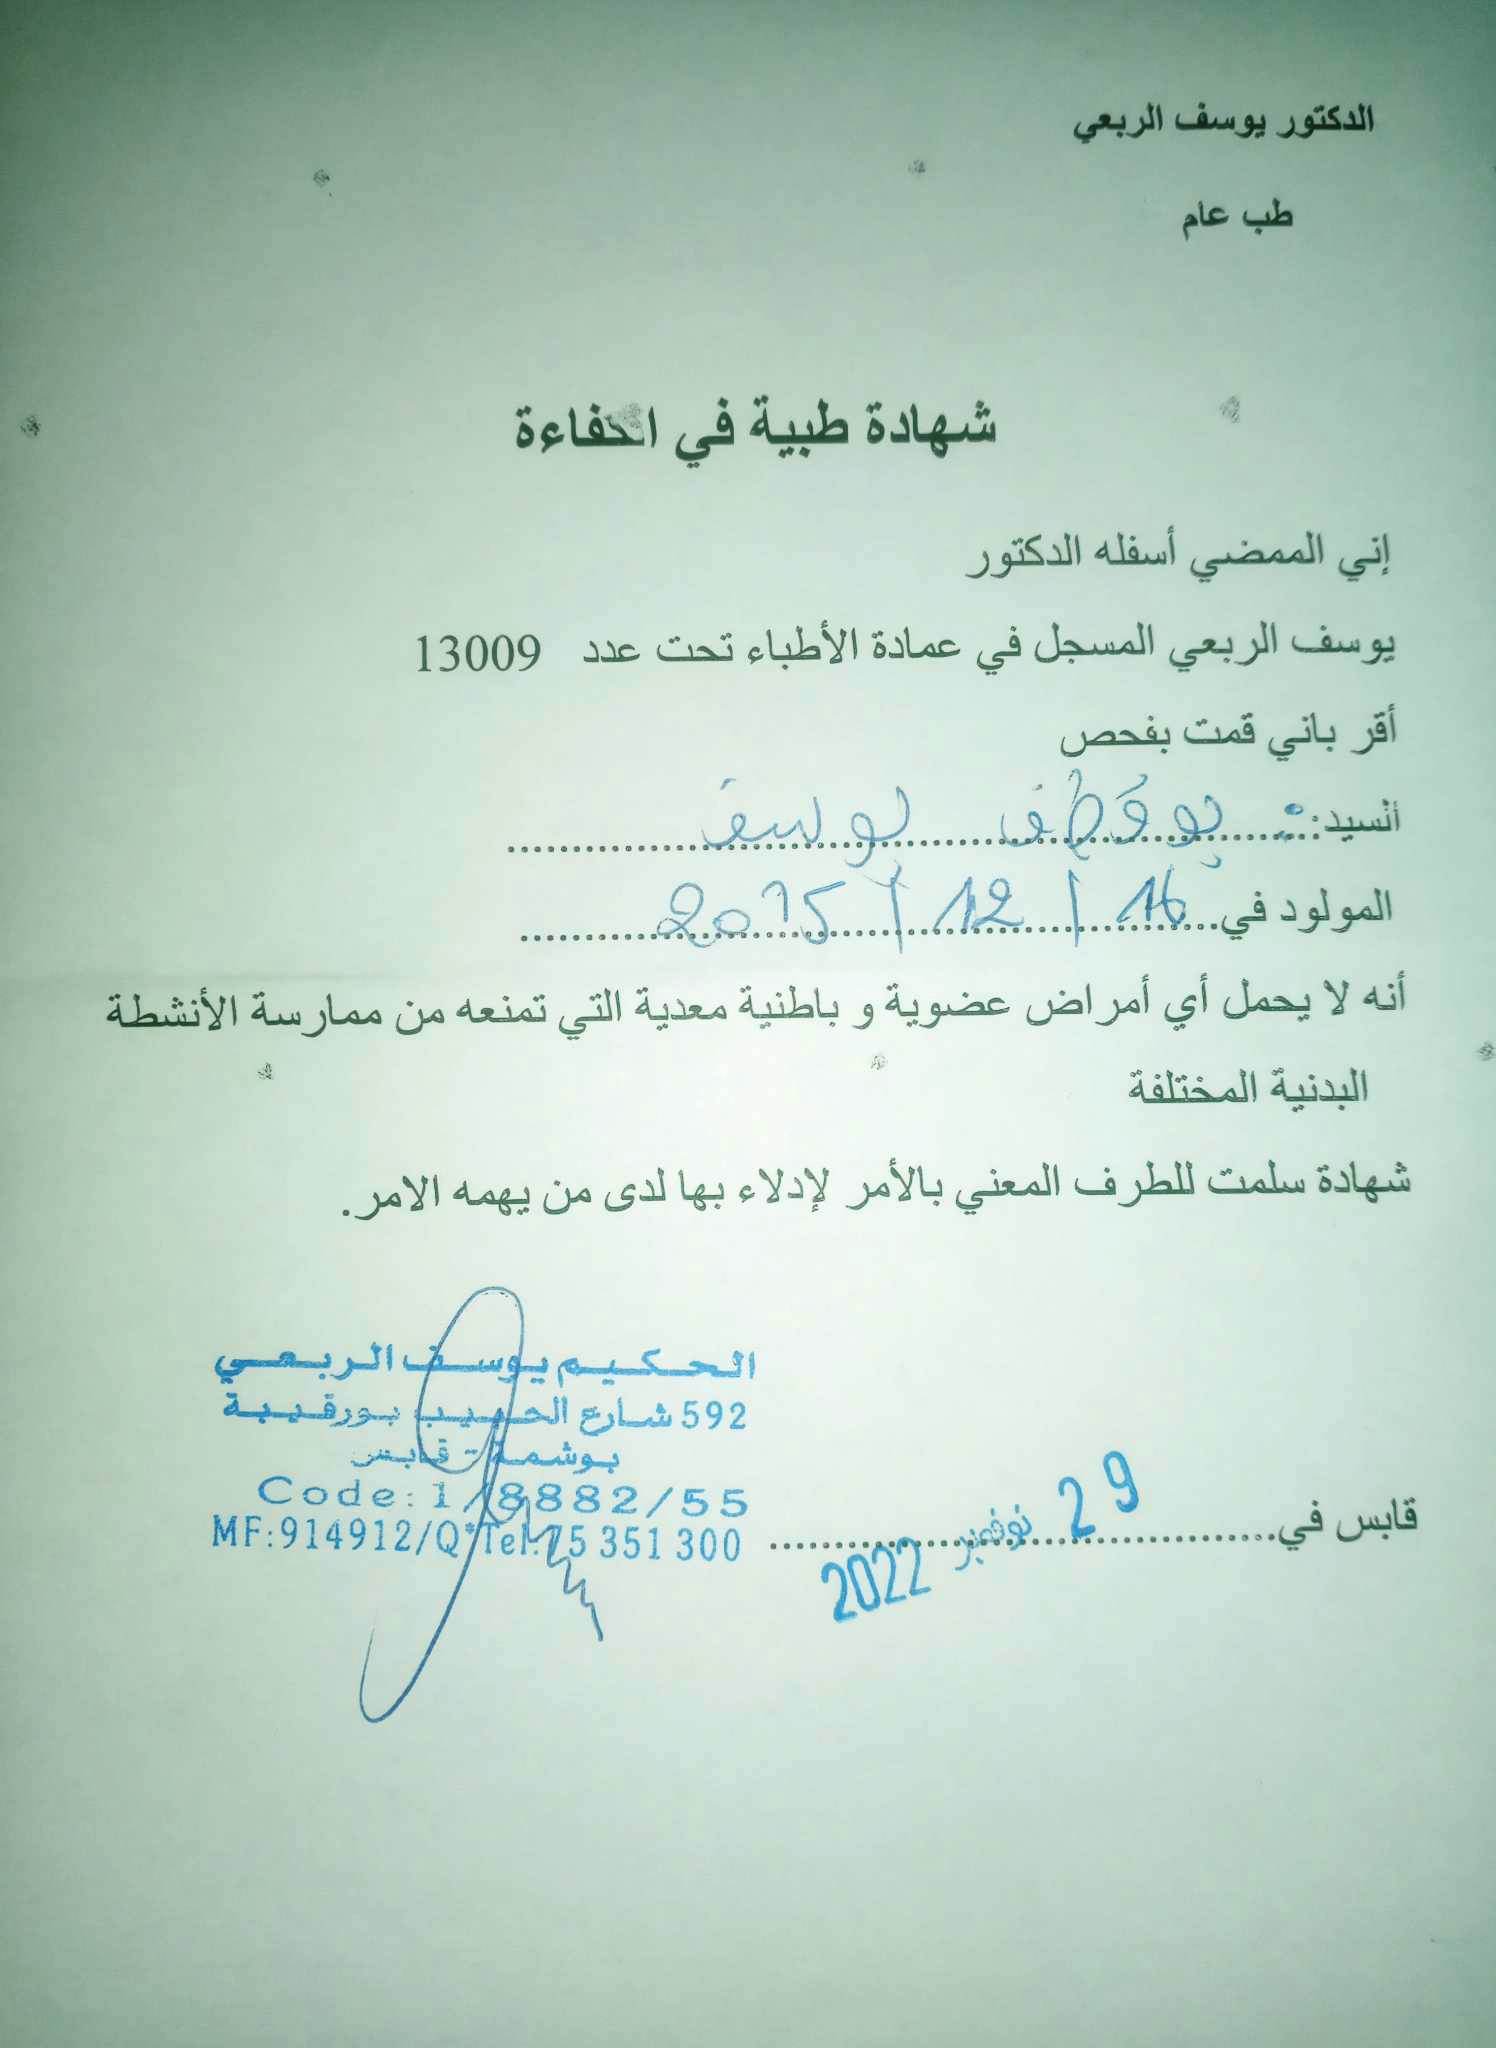 الدكتور يوسف الربعي
طب عام
شهادة طبية في الكفاءة
إني الممضي أسفله الدكتور
يوسف الربعي المسجل في عمادة الأطباء تحت عدد 13009
أقر باني قمت بفحص
السيد: يوسف
المولود في 16 / 12 / 2015
أنه لا يحمل أي أمراض عضوية و باطنية معدية التي تمنعه من ممارسة الأنشطة
البدنية المختلفة
شهادة سلمت للطرف المعني بالأمر لإدلاء بها لدى من يهمه الامر.
الحكيم يوسف الربعي
592 شارع الحبيب بورقيبة
بوشمة - قابس
Code: 1/8882/55
MF:914912/Q*Tel:75 351 300
قابس في 29 نوفمبر 2022